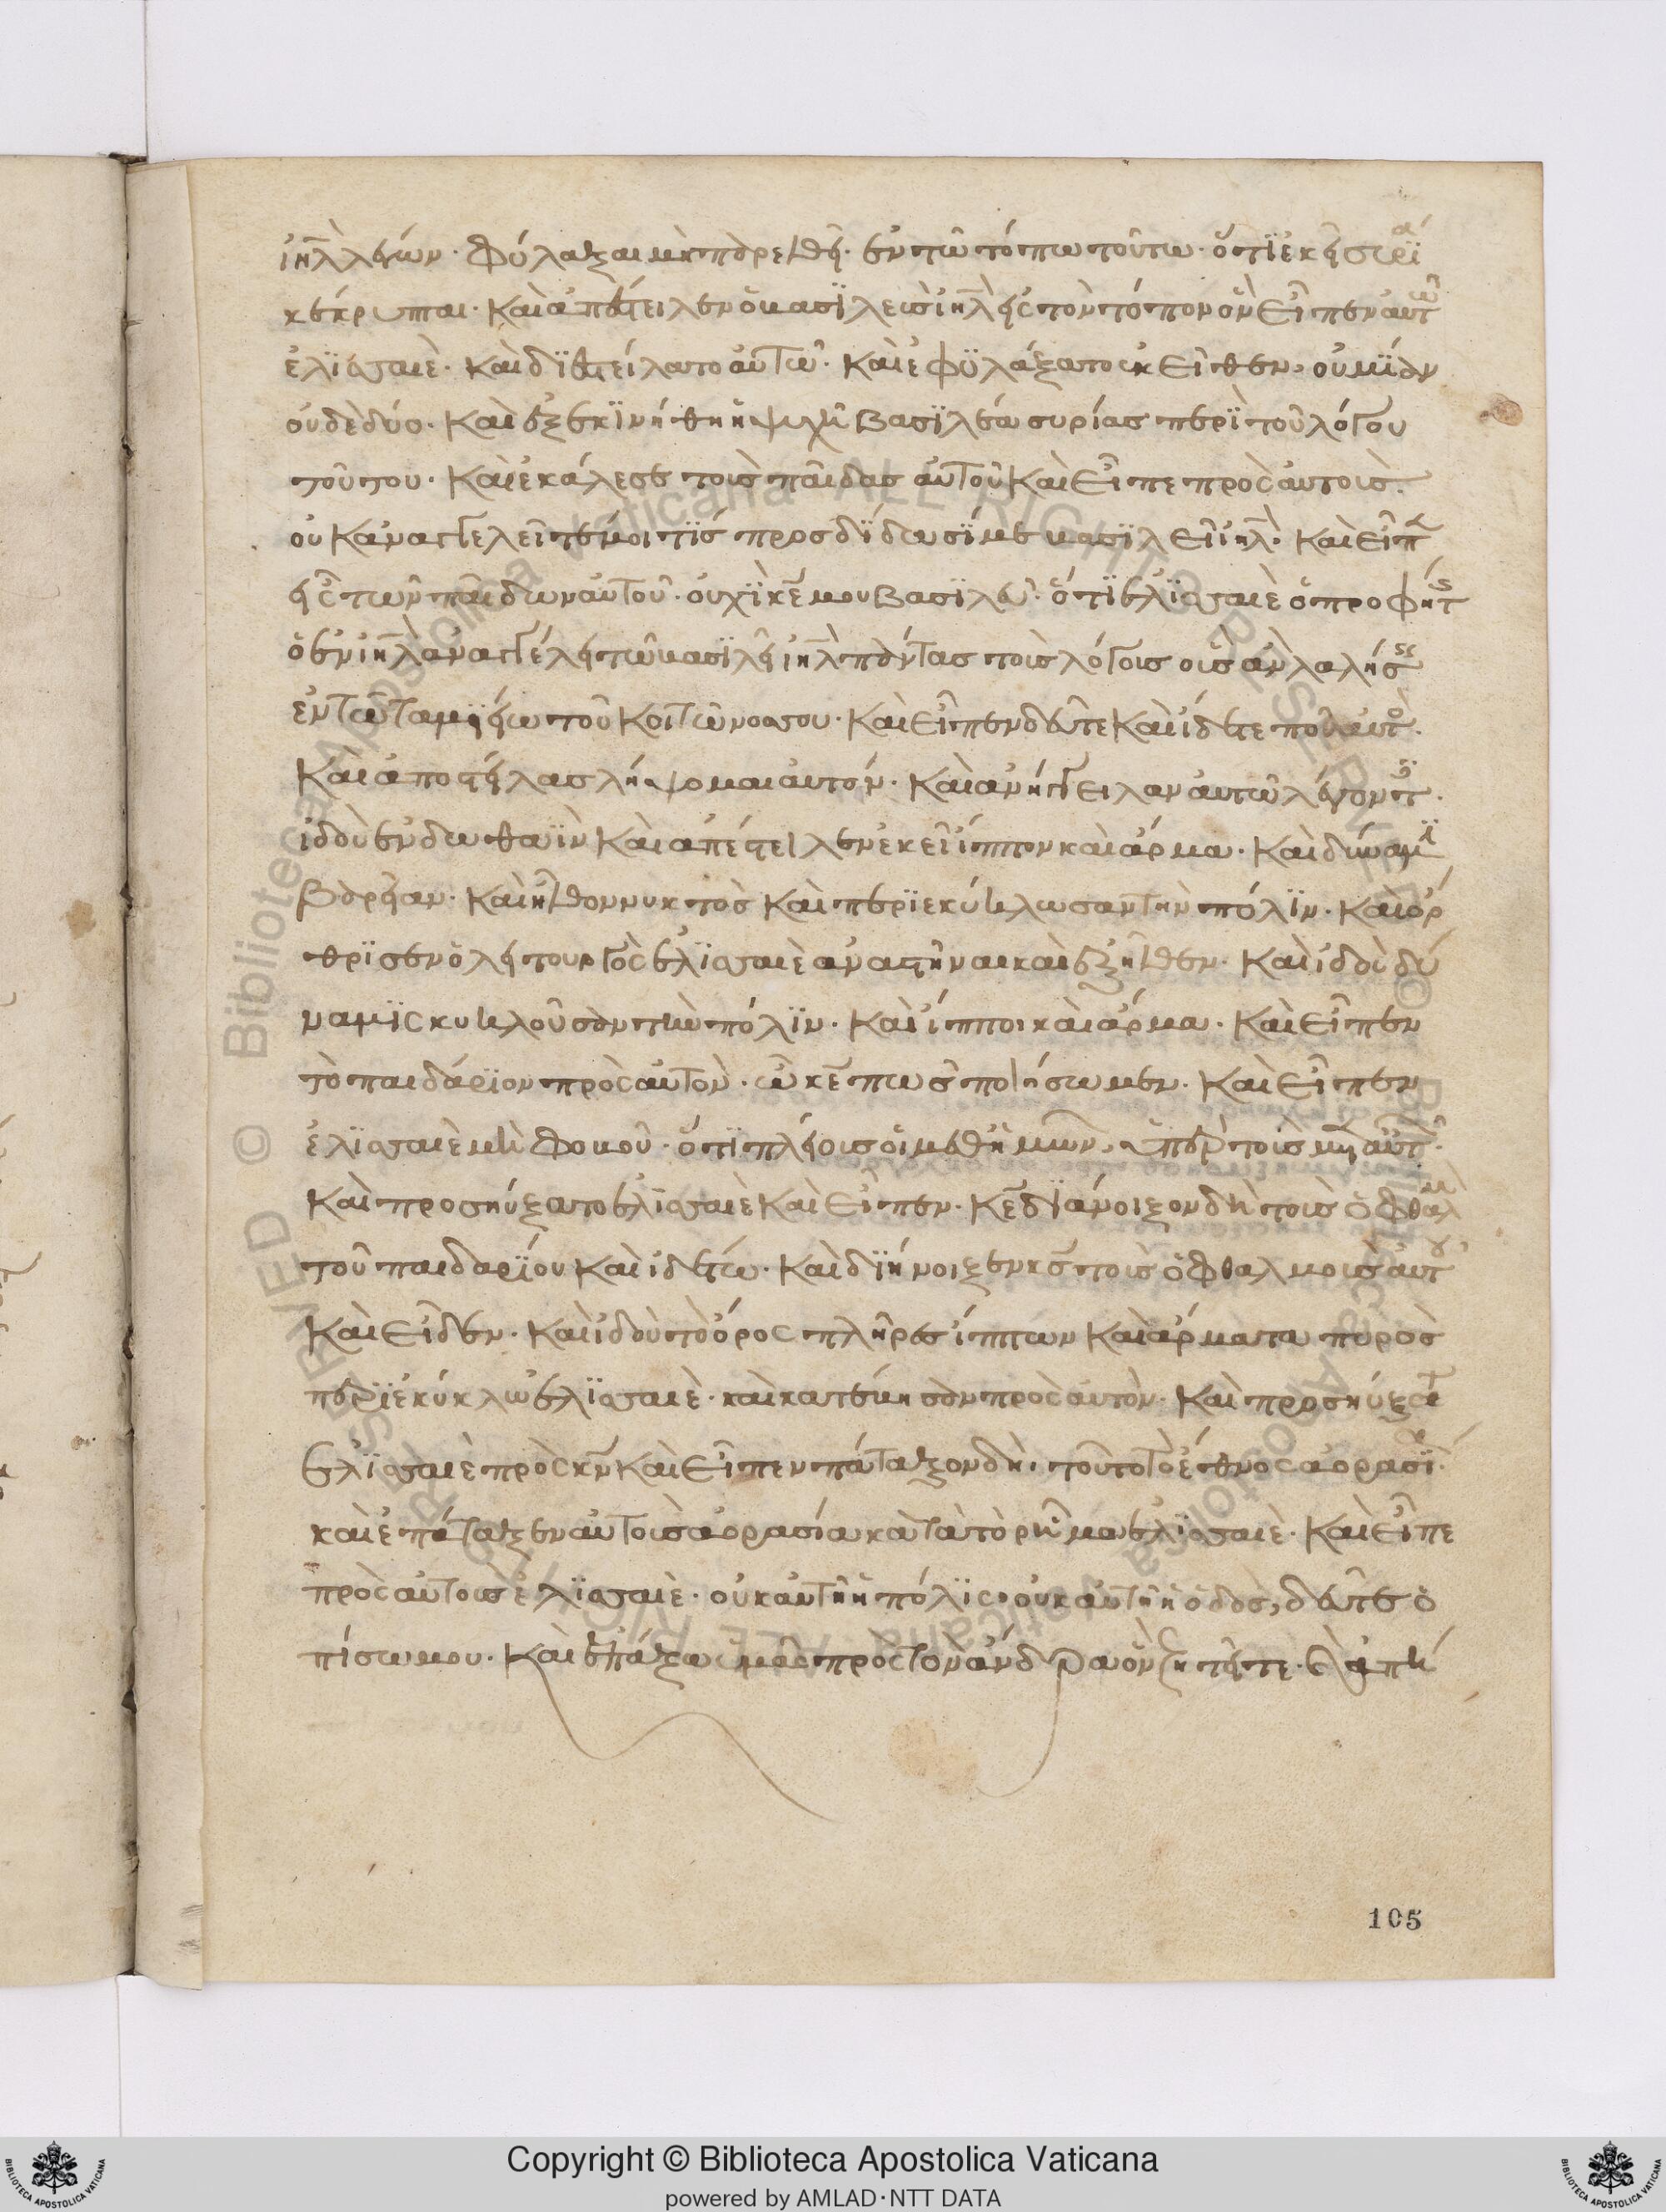 ἰη̅λ λέγων· φύλαξαι μὴ παρελθεῖν ἐν τῷ τόπω τούτω· ὅτι ἐκεῖ συρία
κέκρυπται· καὶ ἀπέστειλεν ὁ βασιλεὺς ἰη̅λ εἰς τὸν τόπον ὃν εἶπεν αὐτῶ
ἐλισσαιὲ· καὶ διεστείλατο αὐτῶ· καὶ ἐφυλάξατο ἐκεῖθεν, οὐ μίαν
οὐδὲ δύο· καὶ ἐξεκινήθη ἡ ψυχὴ βασιλέως συρίας περὶ τοῦ λόγου
τούτου· καὶ ἐκάλεσε τοὺς παῖδας αὐτοῦ καὶ εἶπε πρὸς αὐτοὺς·
οὐκ ἀναγγελεῖτέ μοι τίς προσδίδωσί με βασιλεῖ ἰη̅λ· καὶ εἶπεν
εἷς τῶν παίδων αὐτοῦ· οὐχὶ κε̅ μου βασιλεῦ· ὅτι ἐλισσαιὲ ὁ προφήτης
ὁ ἐν ἰη̅λ ἀναγγέλει τῶ βασιλεῖ ἰη̅λ πάντας τοὺς λόγους οὓς ἂν λαλήσης
ἐν τῶ ταμιείω τοῦ κοιτῶνος σου· καὶ εἶπεν δεῦτε καὶ ἴδετε ποῦ αὐτὸς·
καὶ ἀποστείλας λήψομαι αὐτόν· καὶ ἀνήγγειλαν αὐτῶ λέγοντες·
ἰδοὺ ἐν δωθαῒν καὶ ἀπέστειλεν ἐκεῖ ἵππον καὶ ἅρμα· καὶ δύναμιν
βαρεῖαν· καὶ ἦλθον νυκτὸς καὶ περιεκύκλωσαν τὴν πόλιν· καὶ ὤρ
θρισεν ὁ λειτουργὸς ἐλισσαιὲ ἀναστῆναι καὶ ἐξῆλθεν· καὶ ἰδοὺ δύ
ναμις κυκλοῦσαν τὴν πόλιν· καὶ ἵπποι καὶ ἅρμα· καὶ εἶπεν
τὸ παιδάριον πρὸς αὐτὸν· ὦ κε̅ πῶς ποιήσωμεν· καὶ εἶπεν
ἐλισσαιὲ μὴ φοβοῦ· ὅτι πλείους οἱ μεθ᾽ ἡμῶν, ὑπὲρ τοὺς μετ᾽ αὐτῶν·
καὶ προσηύξατο ἐλισσαιὲ καὶ εἶπεν· κε̅ διάνοιξον δὴ τοὺς ὀφθαλμοὺς
τοῦ παιδαρίου καὶ ἰδέτω· καὶ διήνοιξεν κς̅ τοὺς ὀφθαλμοὺς αὐτοῦ
καὶ εἶδεν· καὶ ἰδοὺ τὸ ὄρος πλῆρες ἵππων καὶ ἅρματα πυρὸς
περὶ κύκλω ἐλισσαιὲ· καὶ κατέβησαν πρὸς αὐτὸν· καὶ προσηύξατο
ἐλισσαιὲ πρὸς κν̅ καὶ εἶπεν πάταξον δὴ τοῦτο τὸ ἔθνος ἀορασία·
καὶ ἐπάταξεν αὐτοὺς ἀορασία κατὰ τὸ ρῆμα ἐλισσαιὲ· καὶ εἶπε
πρὸς αὐτοὺς ἐλισσαιὲ· οὐκ αὕτη ἡ πόλις, οὐκ αὕτη ἡ ὁδὸς, δεῦτε ὀ
πίσω μου· καὶ ἐπάξω ὑμᾶς πρὸς τὸν ἄνδρα ὃν ζητεῖτε· καὶ ἀπή
105
Copyright © Biblioteca Apostolica Vaticana
powered by AMLAD·NTT DATA